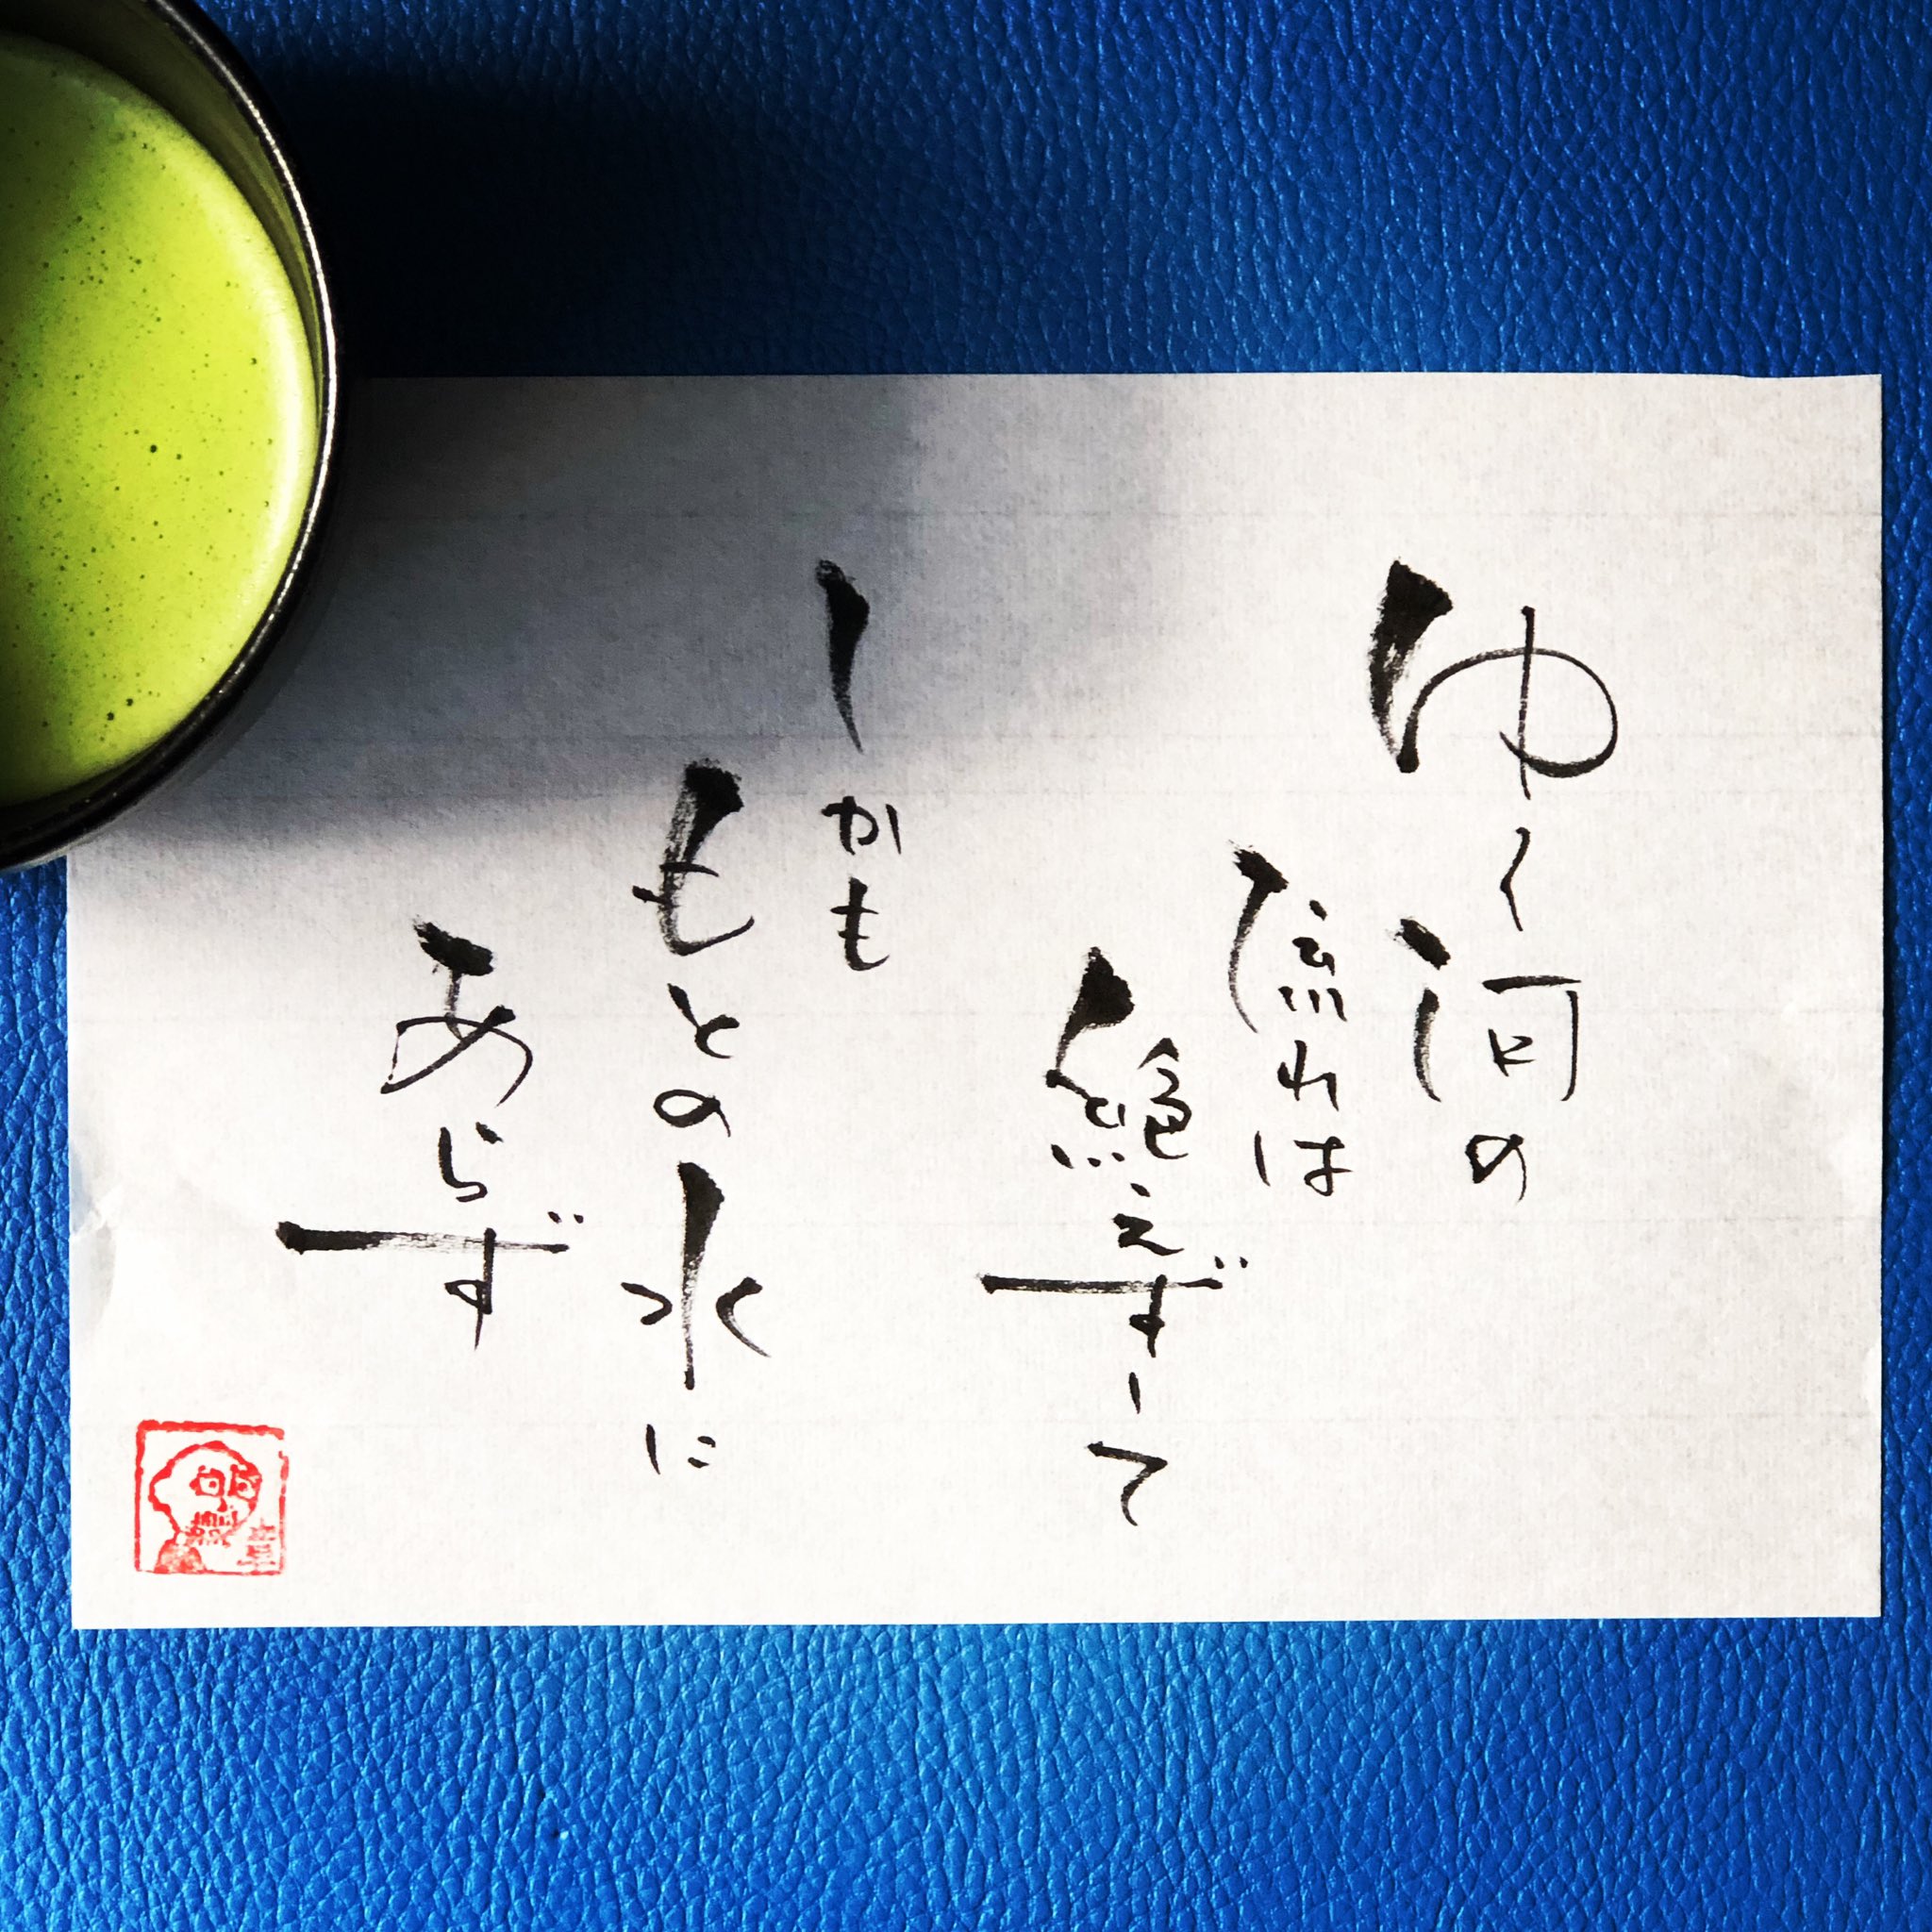 ゆく河の
流れは
絶えずして
しかも
もとの水に
あらず